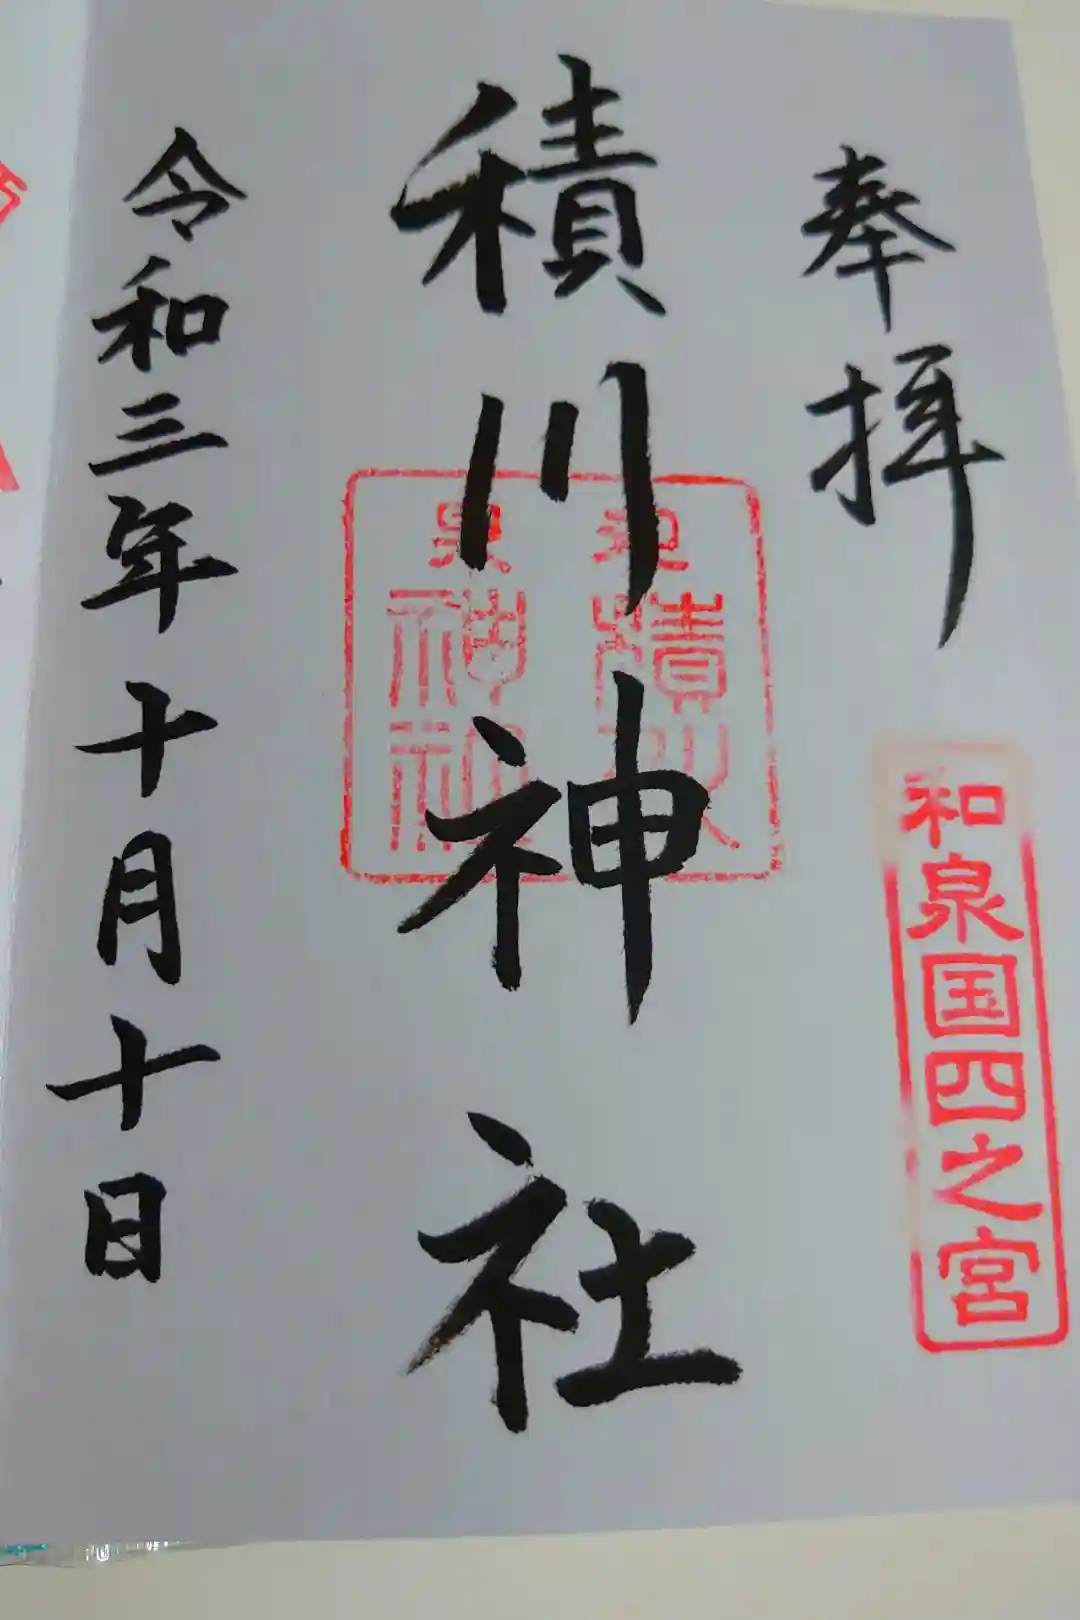 奉拝
和泉国四之宮
積川神社
和泉
積川
神社
令和三年十月十日